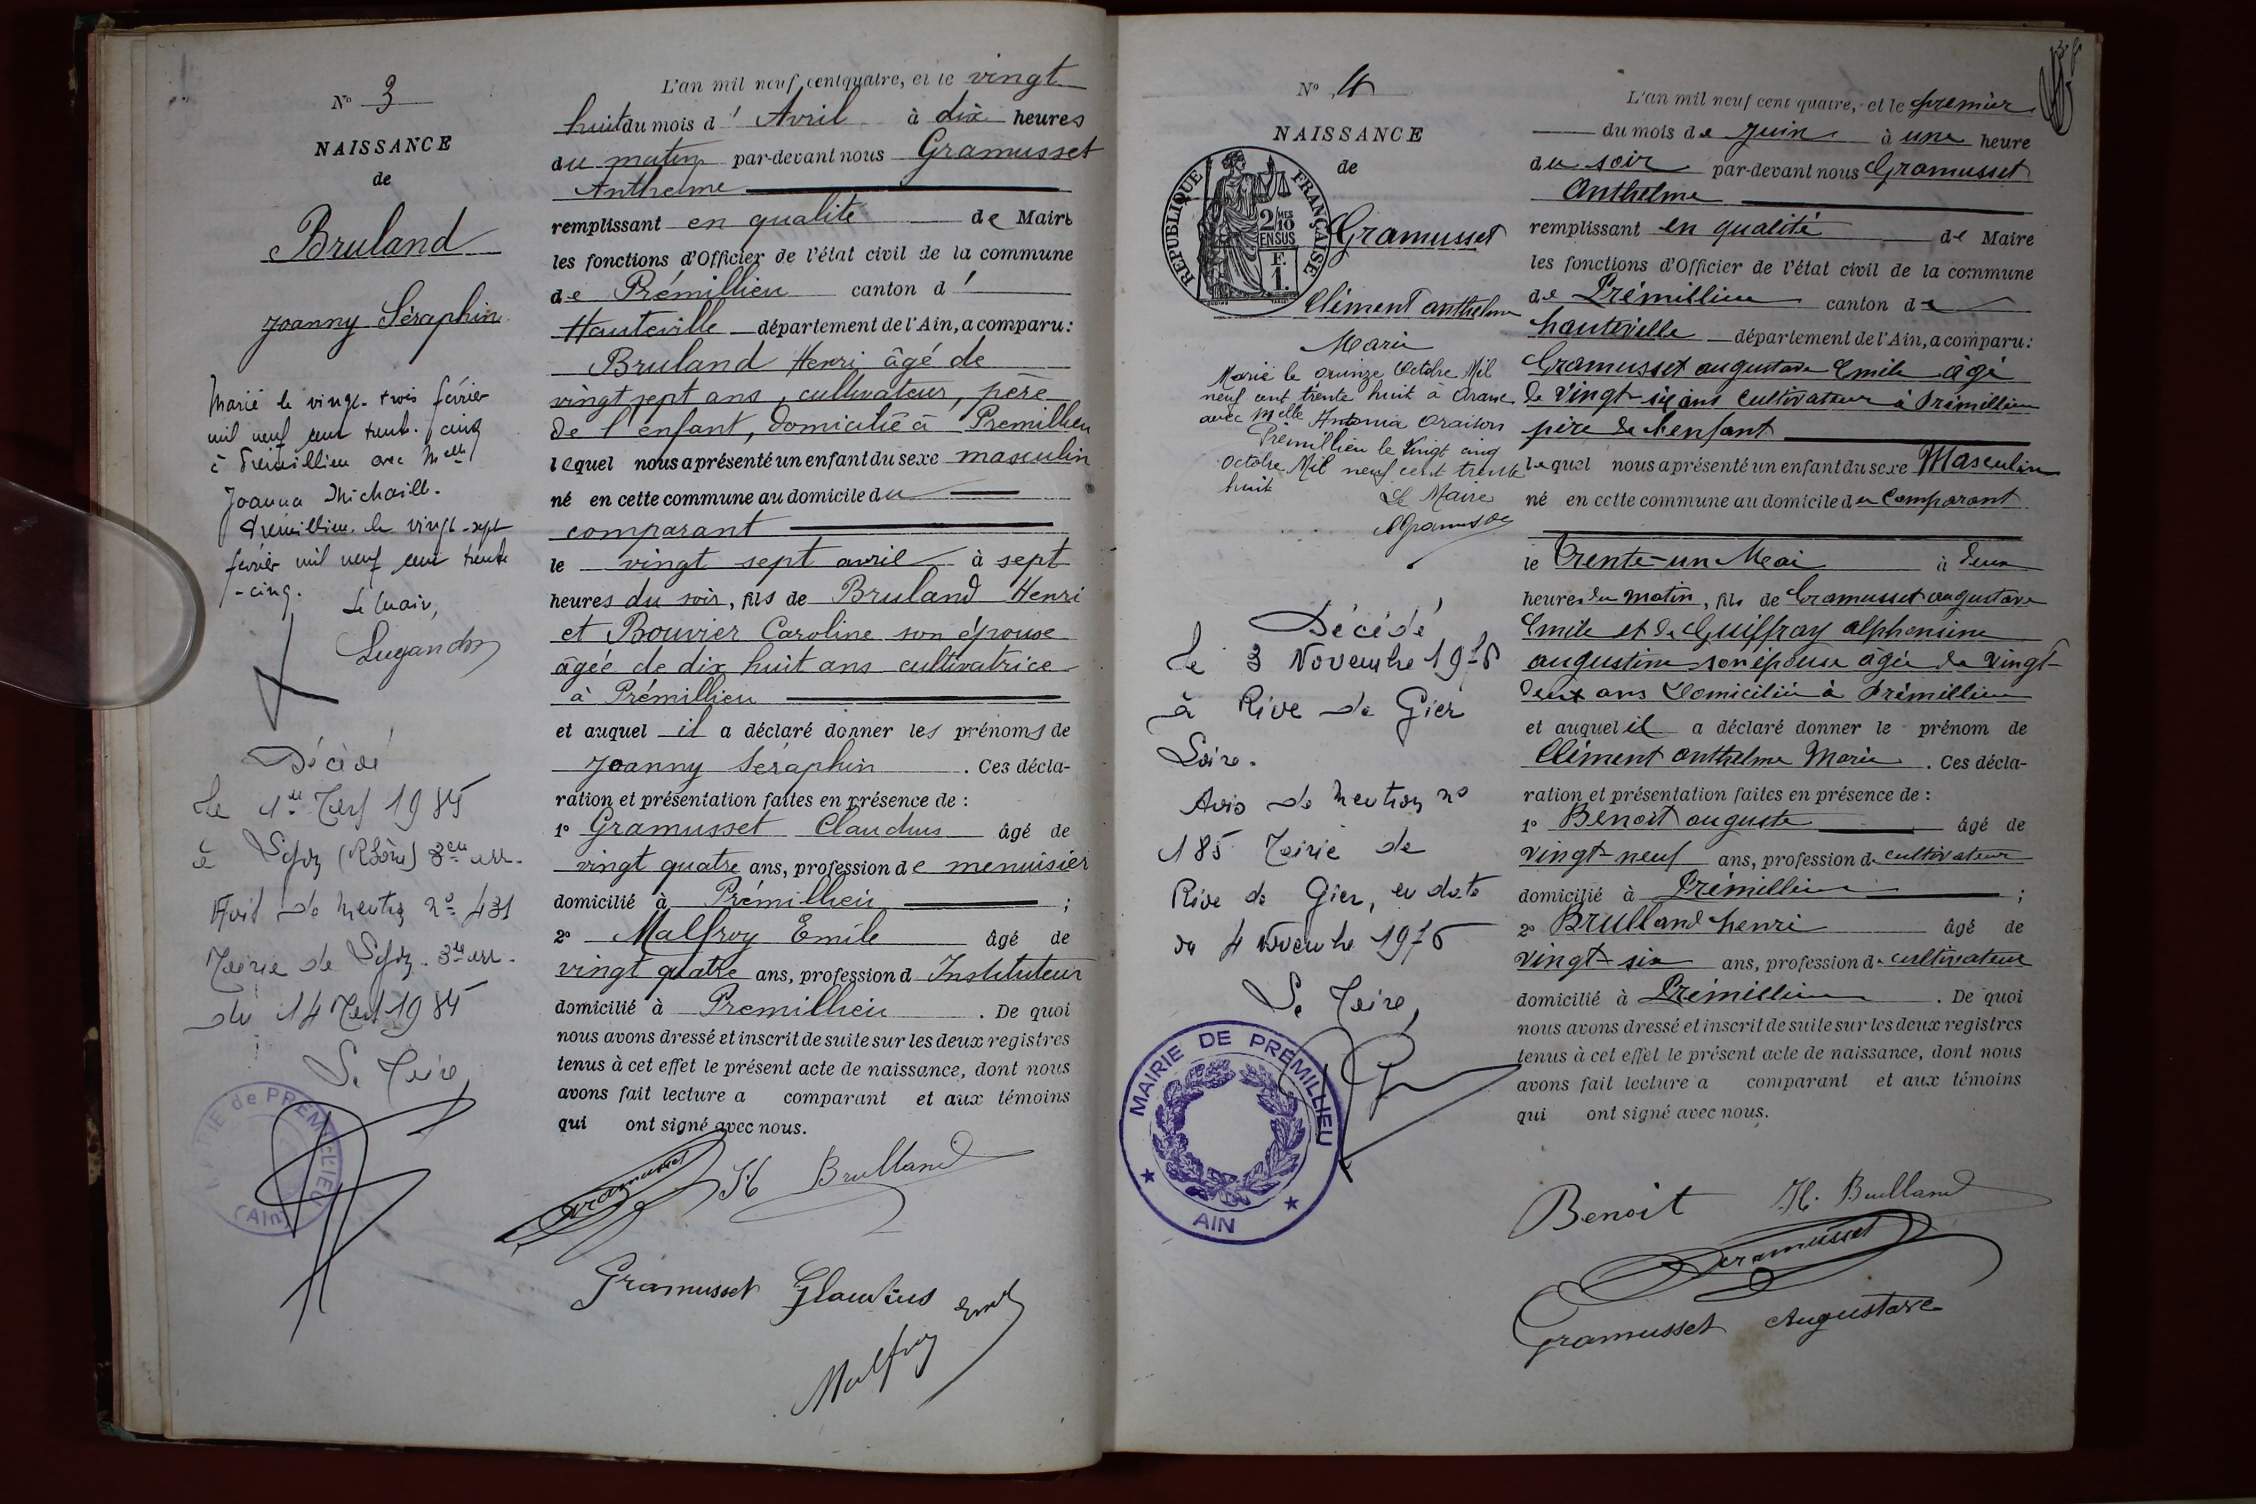 N° 3
NAISSANCE
de
Bruland
Joanny Séraphin
Marié le vingt-trois février
mil neuf cent trente-cinq
à Prémillieu avec Melle
Joanna Michaille.
Prémillieu le vingt-sept
février mil neuf cent trente
-cinq.
Le Maire,
Décédé
le 1er 1985
à Lyon (Rhône) 3em arr.
Avis de mention n° 431
Mairie de Lyon 3e arr.
du 14 1985
Le Maire,
MAIRIE de PREMILLIEU
(Ain)
L'an mil neuf cent quatre, et le vingt
huit du mois d' Avril à dix heures
du matin par-devant nous Gramusset
Anthelme
remplissant en qualité de Maire
les fonctions d'Officier de l'état civil de la commune
de Prémillieu canton d'
Hauteville département de l'Ain, a comparu :
Bruland Henri âgé de
vingt sept ans, cultivateur, père
de l'enfant, domicilié à Prémillieu
lequel nous a présenté un enfant du sexe masculin
né en cette commune au domicile du
comparant
le vingt sept avril à sept
heures du soir, fils de Bruland Henri
et Bouvier Caroline son épouse
âgée de dix huit ans cultivatrice
à Prémillieu
et auquel il a déclaré donner les prénoms de
Joanny Séraphin . Ces décla-
ration et présentation faites en présence de :
1° Gramusset Claudius âgé de
vingt quatre ans, profession de menuisier
domicilié à Prémillieu ;
2° Malfroy Emile âgé de
vingt quatre ans, profession d Instituteur
domicilié à Premillieu . De quoi
nous avons dressé et inscrit de suite sur les deux registres
tenus à cet effet le présent acte de naissance, dont nous
avons fait lecture a comparant et aux témoins
qui ont signé avec nous.
Gramusset H Brulland
Gramusset Glaudius
Malfroy Emile
N° 4
NAISSANCE
de
REPUBLIQUE FRANÇAISE
2/10 MES
EN SUS
F.
1.
Gramusset
Clément anthelme
Marie
Marié le quinze Octobre Mil
neuf cent trente huit à Aranc
avec Melle Antonia Oraison
Prémillieu le Vingt cinq
Octobre Mil neuf cent trente
huit
Le Maire
AGramusset
Décédé
le 3 Novembre 1976
à Rive de Gier
Loire.
Avis de mention n°
185 Mairie de
Rive de Gier, en date
du 4 Novembre 1976
Le Maire,
MAIRIE DE PREMILLIEU
AIN
L'an mil neuf cent quatre, et le premier
du mois de Juin à une heure
du soir par-devant nous Gramusset
Anthelme
remplissant en qualité de Maire
les fonctions d'Officier de l'état civil de la commune
de Prémillieu canton de
hauteville département de l'Ain, a comparu :
Gramusset augustave Emile âgé
de Vingt-six ans Cultivateur à Prémillieu
père de l'enfant
lequel nous a présenté un enfant du sexe Masculin
né en cette commune au domicile du Comparant
le Trente-un Mai à deux
heures du matin, fils de Gramusset augustave
Emile et de Guiffray alphonsine
augustine son épouse âgée de Vingt-
deux ans Domiciliée à Prémillieu
et auquel il a déclaré donner le prénom de
Clément anthelme Marie . Ces décla-
ration et présentation faites en présence de :
1° Benoit auguste âgé de
Vingt-neuf ans, profession de cultivateur
domicilié à Prémillieu ;
2° Brulland henri âgé de
Vingt-six ans, profession de cultivateur
domicilié à Prémillieu . De quoi
nous avons dressé et inscrit de suite sur les deux registres
tenus à cet effet le présent acte de naissance, dont nous
avons fait lecture a comparant et aux témoins
qui ont signé avec nous.
Benoit H. Brulland
Gramusset
Gramusset Augustave